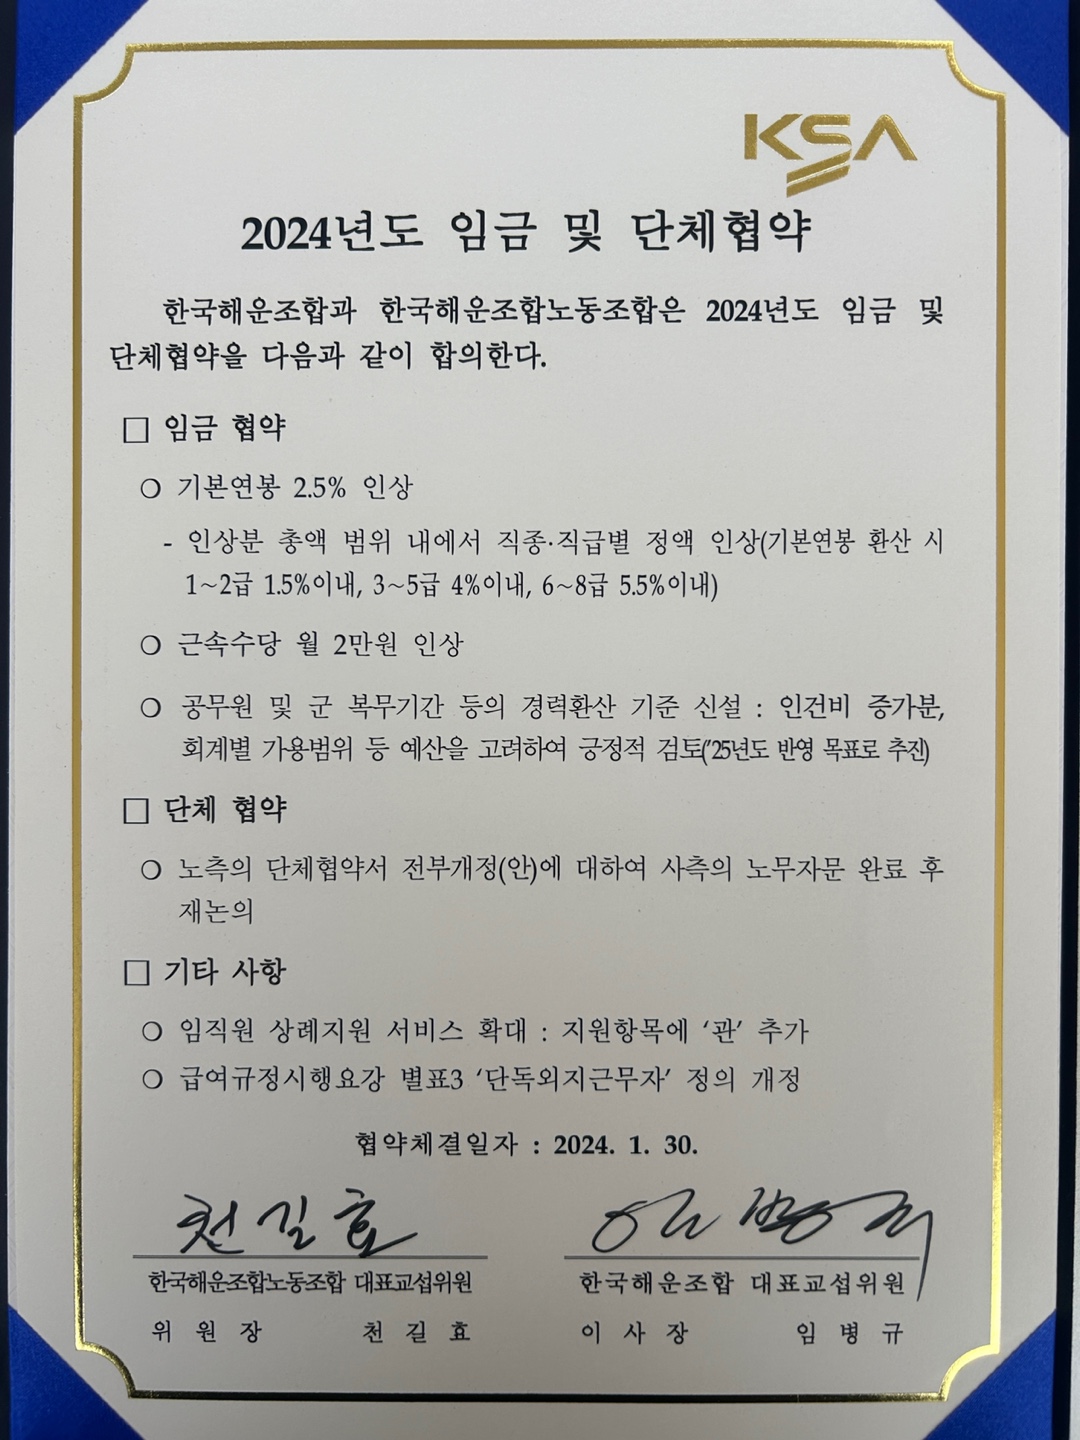 KSA
2024년도 임금 및 단체협약
한국해운조합과 한국해운조합노동조합은 2024년도 임금 및
단체협약을 다음과 같이 합의한다.
□ 임금 협약
❍ 기본연봉 2.5% 인상
- 인상분 총액 범위 내에서 직종·직급별 정액 인상(기본연봉 환산 시
1~2급 1.5%이내, 3~5급 4%이내, 6~8급 5.5%이내)
❍ 근속수당 월 2만원 인상
❍ 공무원 및 군 복무기간 등의 경력환산 기준 신설 : 인건비 증가분,
회계별 가용범위 등 예산을 고려하여 긍정적 검토('25년도 반영 목표로 추진)
□ 단체 협약
❍ 노측의 단체협약서 전부개정(안)에 대하여 사측의 노무자문 완료 후
재논의
□ 기타 사항
❍ 임직원 상례지원 서비스 확대 : 지원항목에 '관' 추가
❍ 급여규정시행요강 별표3 '단독외지근무자' 정의 개정
협약체결일자 : 2024. 1. 30.
천길효 임병규
한국해운조합노동조합 대표교섭위원 한국해운조합 대표교섭위원
위 원 장 천 길 효 이 사 장 임 병 규